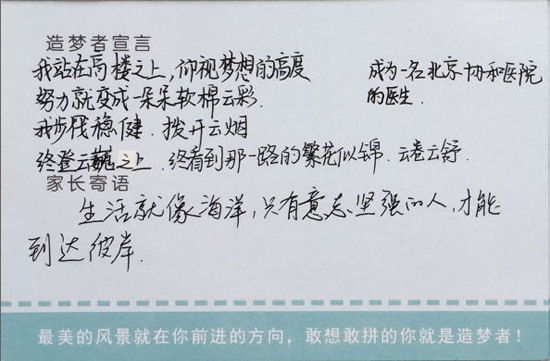 造梦者宣言
我站在高楼之上,仰视梦想的高度
努力就变成一朵朵软棉云彩.
我步伐稳健.拨开云烟
终登云巍之上.终看到那一路的繁花似锦.云卷云舒.
成为一名北京协和医院
的医生.
家长寄语
生活就像海洋,只有意志坚强的人,才能
到达彼岸.
最美的风景就在你前进的方向,敢想敢拼的你就是造梦者!